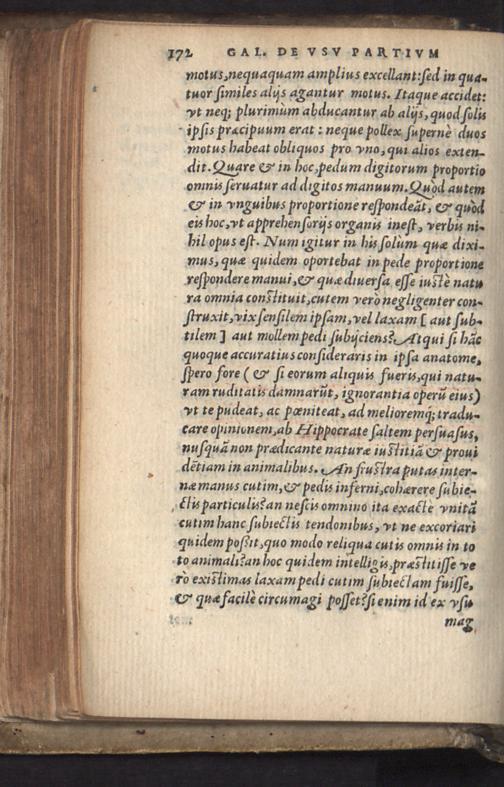 172 GAL. DE VSV PARTIVM
motus, nequaquam amplius excellant: sed in qua-
tuor similes alijs agantur motus. Itaque accidet:
vt neq; plurimùm abducantur ab alijs, quod solis
ipsis præcipuum erat: neque pollex supernè duos
motus habeat obliquos pro vno, qui alios exten-
dit. Quare & in hoc, pedum digitorum proportio
omnis seruatur ad digitos manuum. Quòd autem
& in vnguibus proportione respondeāt, & quòd
eis hoc, vt apprehensorijs organis inest, verbis ni-
hil opus est. Num igitur in his solùm quæ dixi-
mus, quæ quidem oportebat in pede proportione
respondere manui, & quæ diuersa esse iustè natu
ra omnia constituit, cutem verò negligenter con-
struxit, vix sensilem ipsam, vel laxam [aut sub-
tilem] aut mollem pedi subijciens? Atqui si hāc
quoque accuratius consideraris in ipsa anatome,
spero fore (& si eorum aliquis fueris, qui natu-
ram ruditatis damnarūt, ignorantia operū eius)
vt te pudeat, ac pœniteat, ad melioremq; tradu-
care opinionem, ab Hippocrate saltem persuasus,
nusquā non prædicante naturæ iustitiā & proui
dētiam in animalibus. An frustra putas inter-
næ manus cutim, & pedis inferni, cohærere subie-
ctis particulis? an nescis omnino ita exactè vnitā
cutim hanc subiectis tendonibus, vt ne excoriari
quidem possit, quo modo reliqua cutis omnis in to
to animali? an hoc quidem intelligis, præstitisse ve
rò existimas laxam pedi cutim subiectam fuisse,
& quæ facilè circumagi posset? si enim id ex vsu
mag